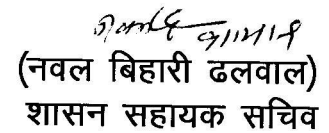 (नवल बिहारी ढलवाल)
शासन सहायक सचिव